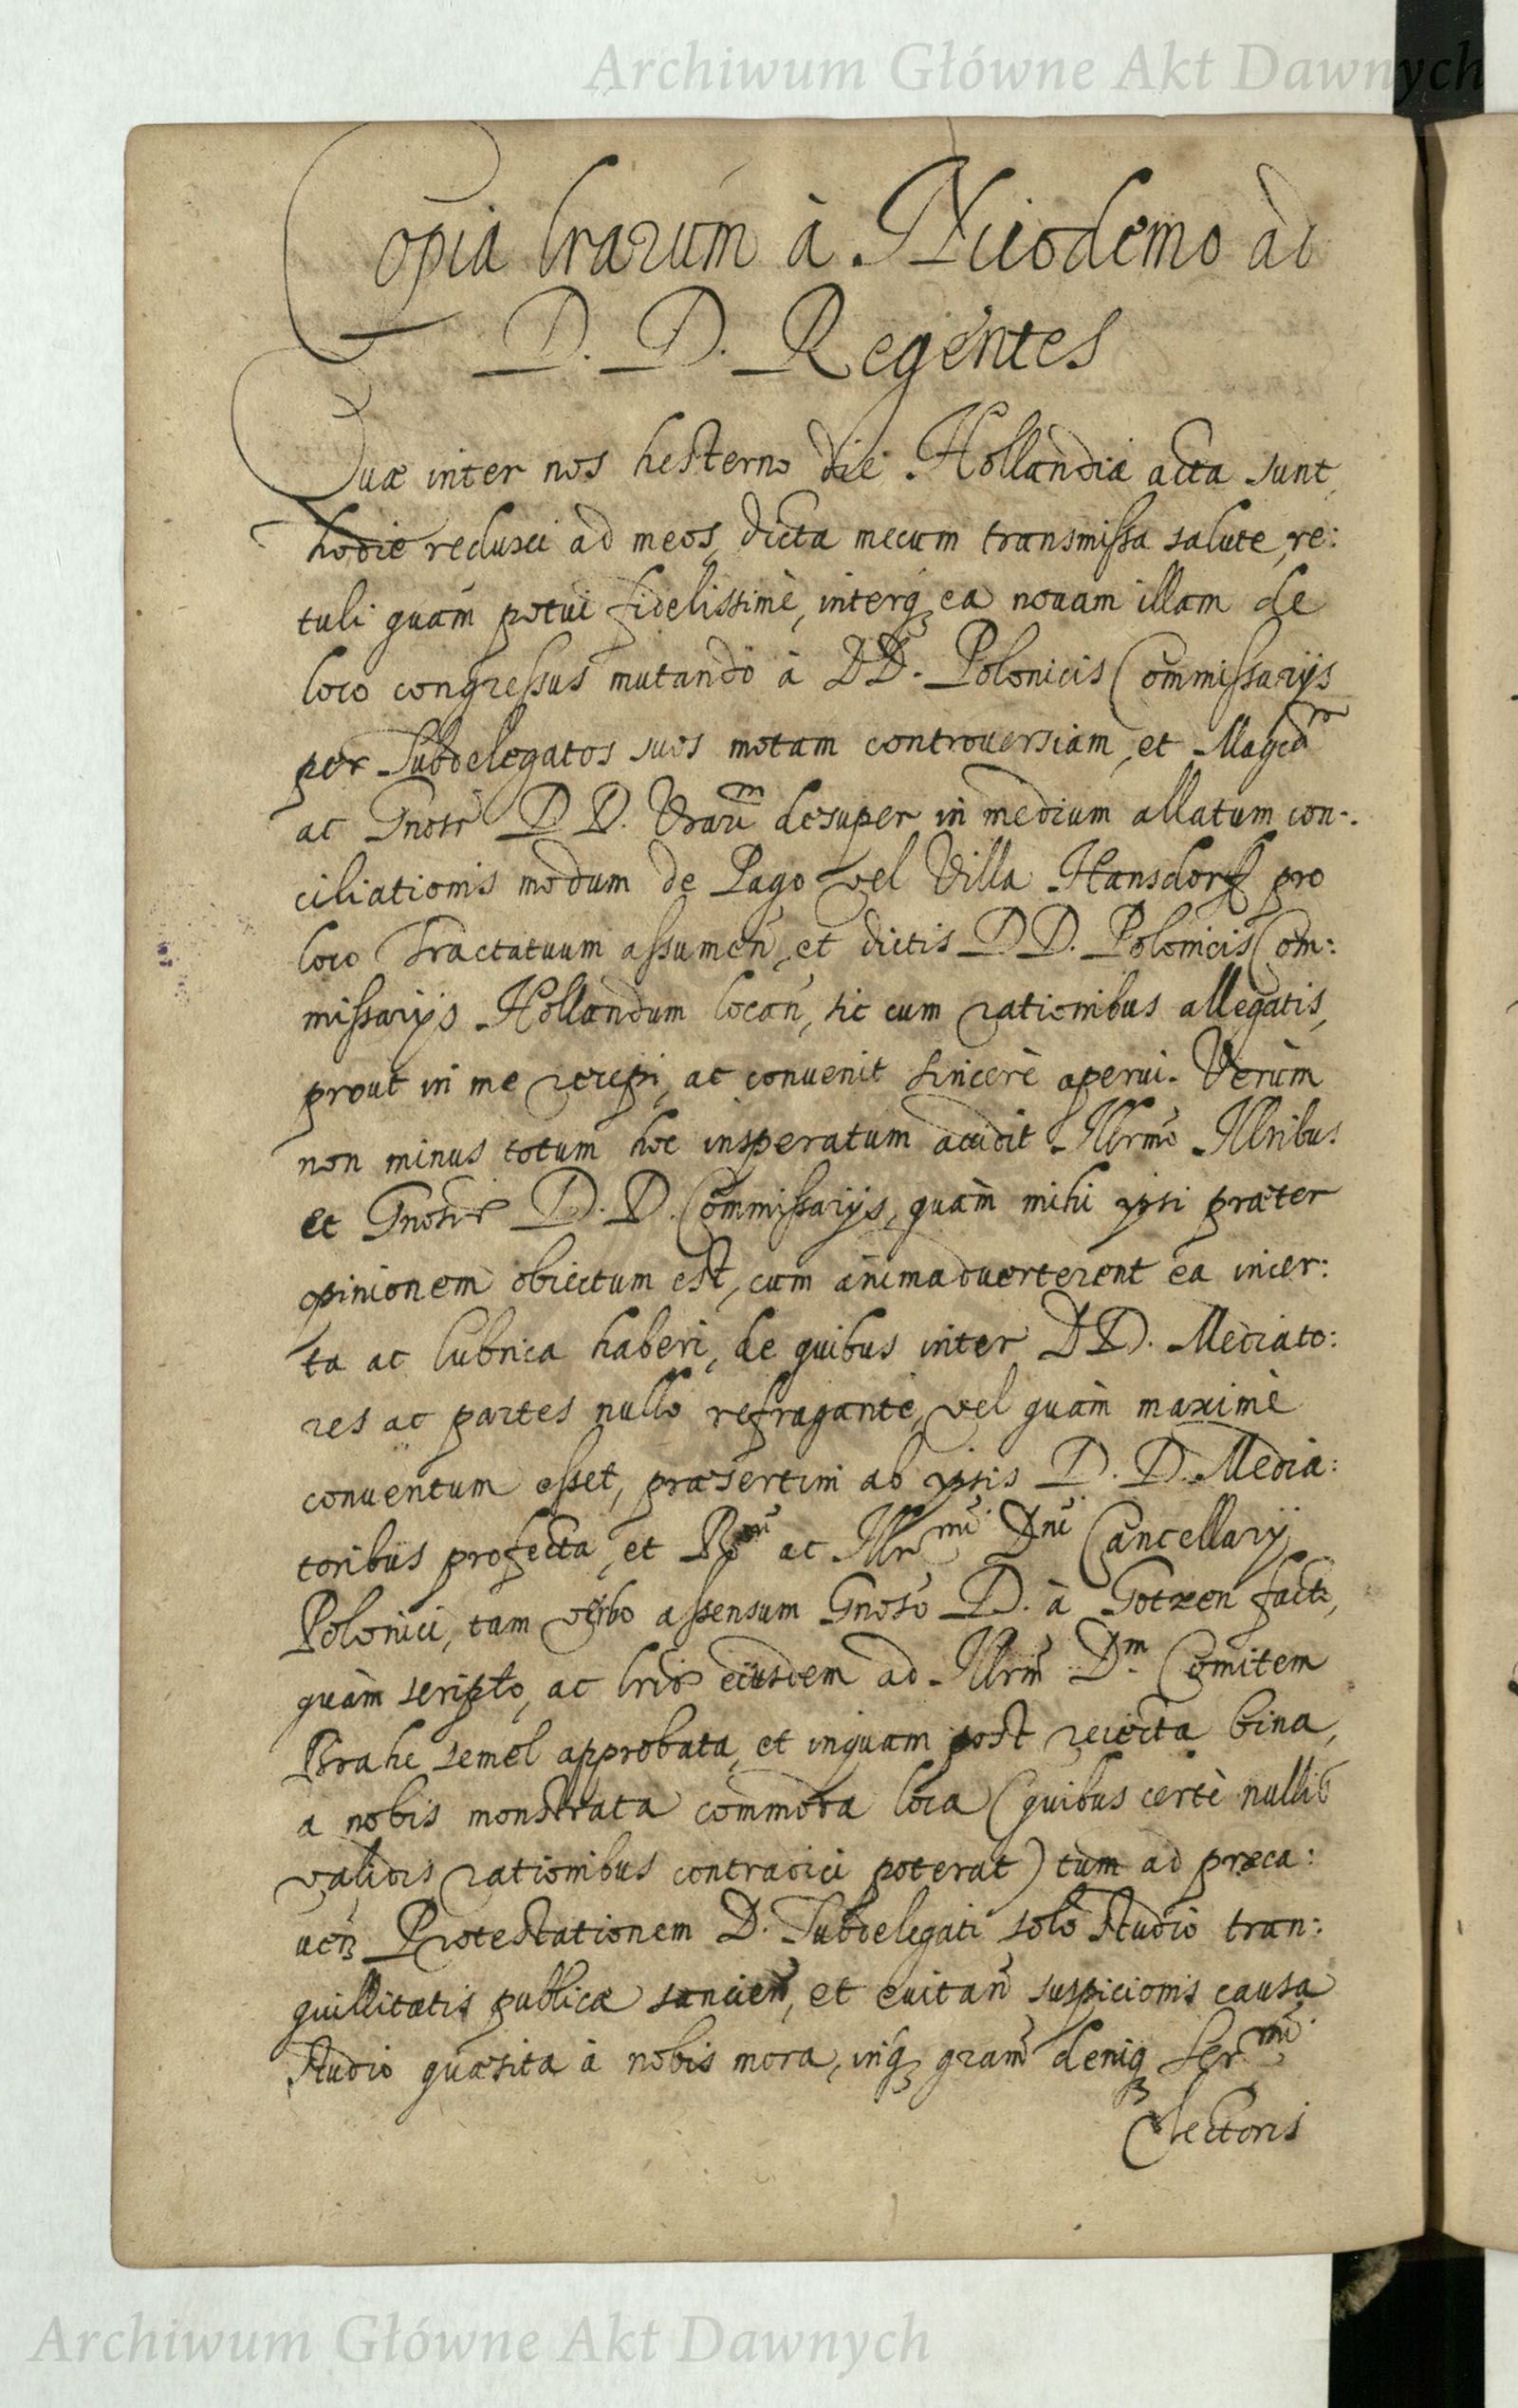 Archiwum Główne Akt Dawnych
Copia lrarum à Nicodemo ad
D. D. Regentes
Quæ inter nos hesterno die Hollandiæ acta sunt,
hodie reduxi ad meos, dicta mecum transmissa salute, re:
tuli quàm potui fidelissimè, interq́ ea nouam illam de
loco congressus mutando à DD. Polonicis Commissarijs
per Subdelegatos suos motam controuersiam, et
ac Gnosr D. D. Vrarũ desuper in medium allatum con:
ciliationis modum de Pago vel Villa Hansdorff pro
loco Tractatuum assumeñ, et dictis D D. Polonicis Com:
missarijs Hollandum locañ, sic cum rationibus allegatis,
prout in me recepi, ac conuenit sincerè aperui. Verùm
non minus totum hoc insperatum accidit Illrmo Illribus
et Gnosis D. D. Commissarijs, quàm mihi ipsi præter
opinionem obiectum est, cum animaduerterent ea incer:
ta ac lubrica haberi, de quibus inter DD. Mediato:
res ac partes nullo refragante, vel quàm maximè
conuentum esset, præsertim ab ipsis D. D. Media:
toribus profecta, et ac Illrmi Dni Cancellarij
Polonici, tam verbo assensum Gnoso D. à Gotzen facto,
quàm scripto, ac lris eiusdem ad Illrm Dm Comitem
Brahe semel approbata, et inquam post reiecta bina,
a nobis monstrata commoda loca (quibus certè nullis
validis rationibus contradici poterat) tum ad præca:
ueñ Protestationem D. Subdelegati solo studio tran:
quillitatis publicæ sancieñ, et euitañ suspicionis causa
studio quæsita à nobis mora, inq́ gram deniq Sermi
Electoris
Archiwum Główne Akt Dawnych